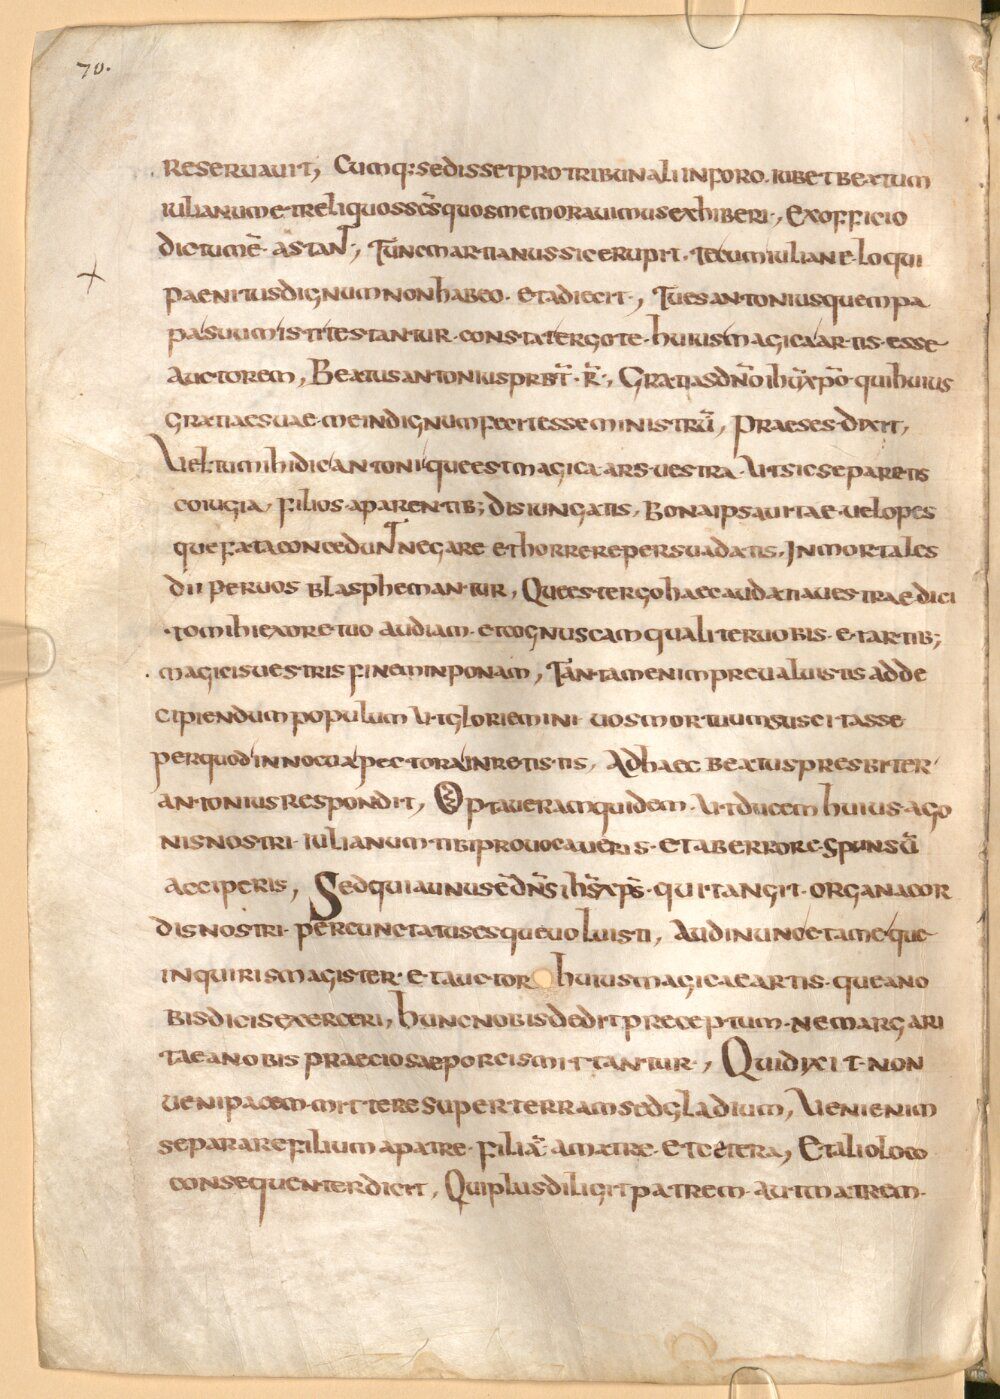 70.
reseruauit, Cumq: sedisset pro tribunali in foro. iubet beatum
iulianum et reliquos scs̄ quos memorauimus exhiberi, Ex officio
dictum ē. astant; Tunc martianus sic erupit. Tecum iuliane loqui
paenitus dignum non habeo. et adiecit, Tu es antonius quem pa
pa suum isti testantur. constat ergo te huius magica artis esse
auctorem, Beatus antonius prb̄t. r̄., Gratias dn̄o ihū xp̄o qui huius
gratiae suae me indignum fecit esse ministrū, Praeses dixit,
Vel tu mihi dic antoni que est magica ars uestra. Vt sic separetis
coiugia, filios a parentib; disiungatis, Bona ipsa uitae uel opes
que fata concedunt negare et horrere persuadatis, Inmortales
dii per uos blasphemantur, Que est ergo haec audatia uestrae dici
to mihi ex ore tuo audiam. et cognuscam qualiter uobis et artib;
magicis uestris finem inponam, Tantam enim preualuistis ad de
cipiendum populum ut gloriemini uos mortuum suscitasse
per quod innocua pectora inretistis, Ad haec beatus presbiter
antonius respondit, Optaueram quidem. Vt ducem huius ago
nis nostri iulianum tibi prouocaueris. et ab errore spunsū
acciperis, Sed quia unus ē dn̄s ihs̄ xp̄s. qui tangit organa cor
dis nostri percunctatus es que uoluisti, Audi nunc et a me que
inquiris magister et auctor huius magicae artis. que a no
bis dicis exerceri, hunc nobis dedit preceptum. ne margari
tae a nobis praeciosae porcis mittantur, Qui dixit. non
ueni pacem mittere super terram sed gladium, Veni enim
separare filium a patre. filiā a matre. et cetera, Et alio loco
consequenter dicit, Qui plus diligit patrem. aut matrem.